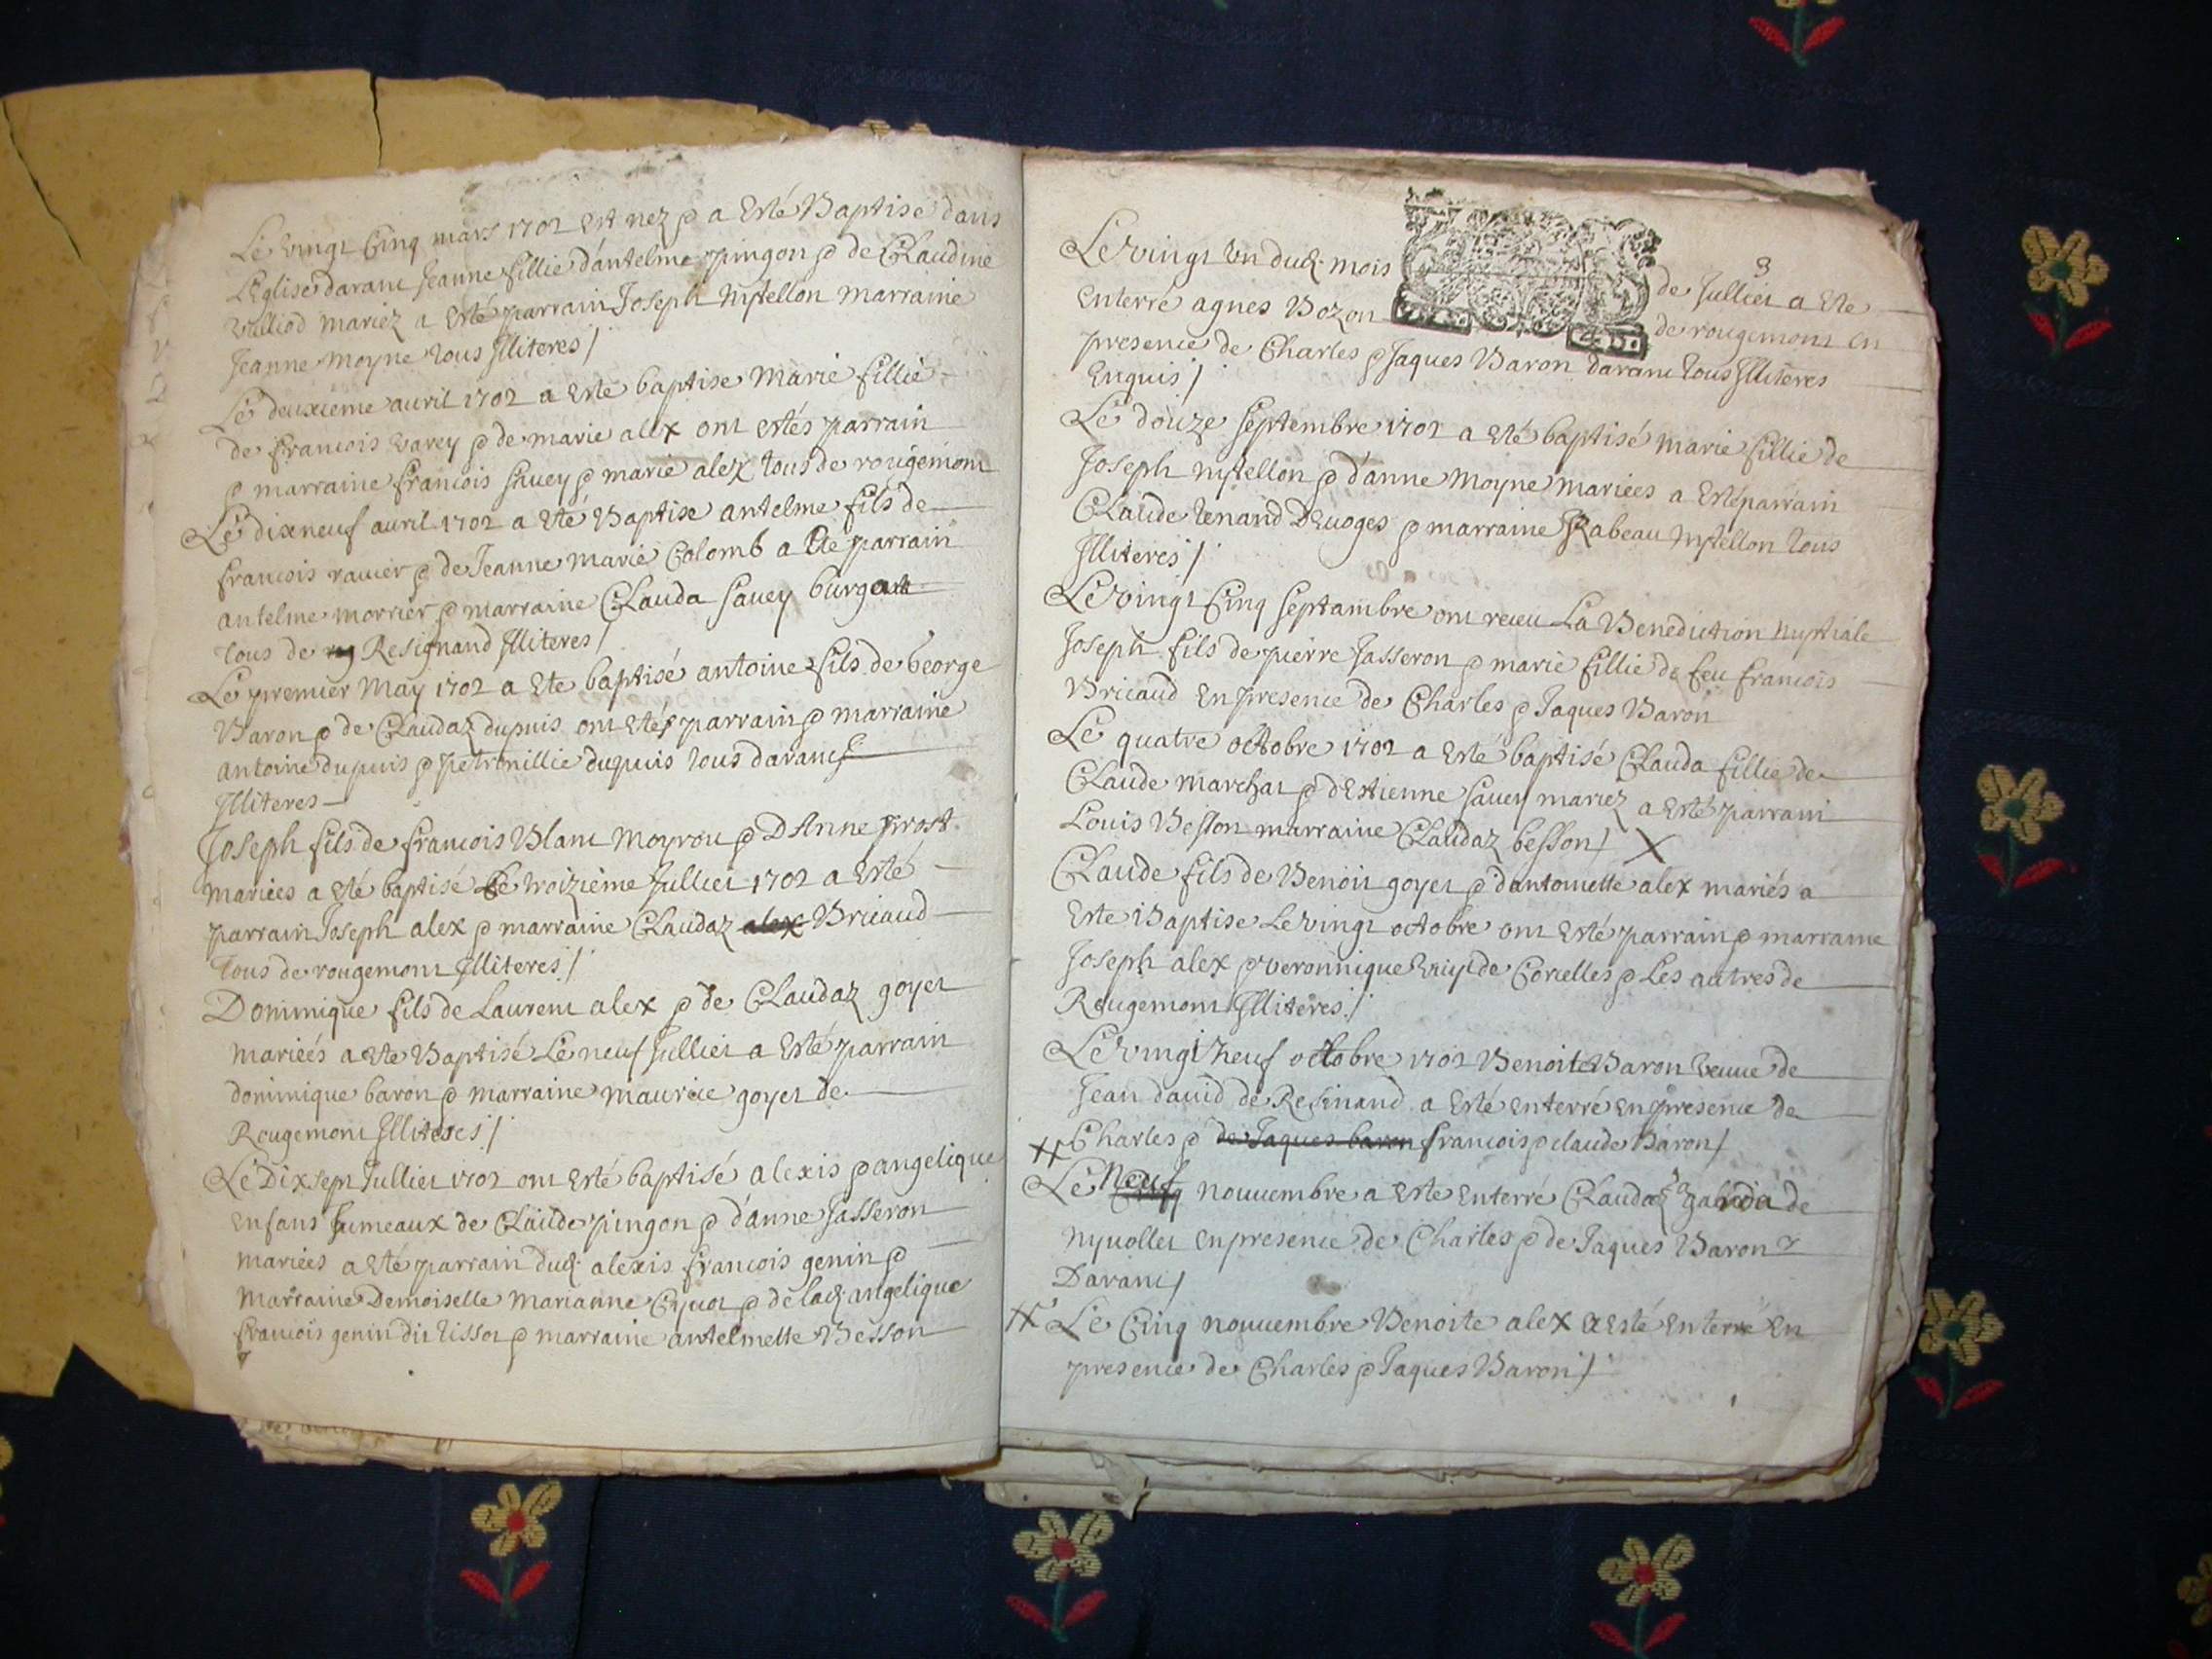 Le vingt Cinq mars 1702 Est nez et a Esté Baptisé dans
L'Eglise daranc Jeanne fillie d'antelme pingon et de Claudine
villiod mariez a Esté parrain Joseph mistellon marraine
Jeanne moyne tous Illiteres /
Le deuxieme auril 1702 a Esté baptise Marie fillie
de francois varey et de marie alex ont estés parrain
et marraine francois sauey et marie alex tous de rougemont
Le dixneuf auril 1702 a Eté Baptise antelme fils de
francois rauier et de Jeanne Marie Colomb a Ete parrain
antelme morrier et marraine Clauda sauey
tous de Resignand Illiteres /
Le premier May 1702 a Ete baptisé antoine fils de George
Baron et de Claudaz dupuis ont Etés parrain et marraine
antoine dupuis et petronillie dupuis tous daranc
Illiteres
Joseph fils de francois Blanc Moyrou et D'Anne prost
mariees a Eté baptisé Le troizieme Julliet 1702 a Esté
parrain Joseph alex et marraine Claudaz alex Bricaud
tous de rougemont Illiteres /
Dominique fils de Laurent alex et de Claudaz goyet
mariéés a Ete Baptisé Le neuf Jullier a Esté parrain
dominique baron et marraine maurice goyet de
Rougemont Illiteres /
Le Dixsept Jullier 1702 ont Esté baptisé alexis et angelique
Enfans Jumeaux de Claude pingon et d'anne Jasseron
mariees a Eté parrain dud. alexis francois genin et
marraine Demoiselle Marianne Cyuot et de lad. angelique
francois genin dit tissot et marraine antelmette Besson
3
Le vingt Un dud. mois de Jullier a Ete
Enterré agnes Bozon de rougemont En
presence de Charles et Jaques Baron daranc tous Illiteres
Enquis /
Le douze septembre 1702 a Eté baptisé marie fillie de
Joseph mistellon et d'anne Moyne mariees a Esté parrain
Claude tenand D'Euoges et marraine Isabeau mistellon tous
Illiteres /
Le vingt Cinq septambre ont receu La Benediction Nuptiale
Joseph fils de pierre Jasseron et marie fillie de feu francois
Bricaud En presence de Charles et Jaques Baron
Le quatre octobre 1702 a Esté baptisé Clauda fillie de
Claude marchat et d'Estienne sauey mariez a Esté parrain
Louis Besson marraine Claudaz besson / X
Claude fils de Benoit goyet et d'antoinette alex mariés a
Este Baptise Le vingt octobre ont Esté parrain et marraine
Joseph alex et veronnique de Corcelles et Les autres de
Rougemont Illiteres /
Le vingt neuf octobre 1702 Benoite Baron Veuue de
Jean dauid de Resinand a Esté Enterré En presence de
Charles et de Jaques baron francois et claude Baron /
Le Cinq Neuf nouuembre a Este Enterré Claudaz de
Nyuollet En presence de Charles et de Jaques Baron
Daranc /
Le Cinq nouuembre Benoite alex a Esté Enterré En
presence de Charles et Jaques Baron /